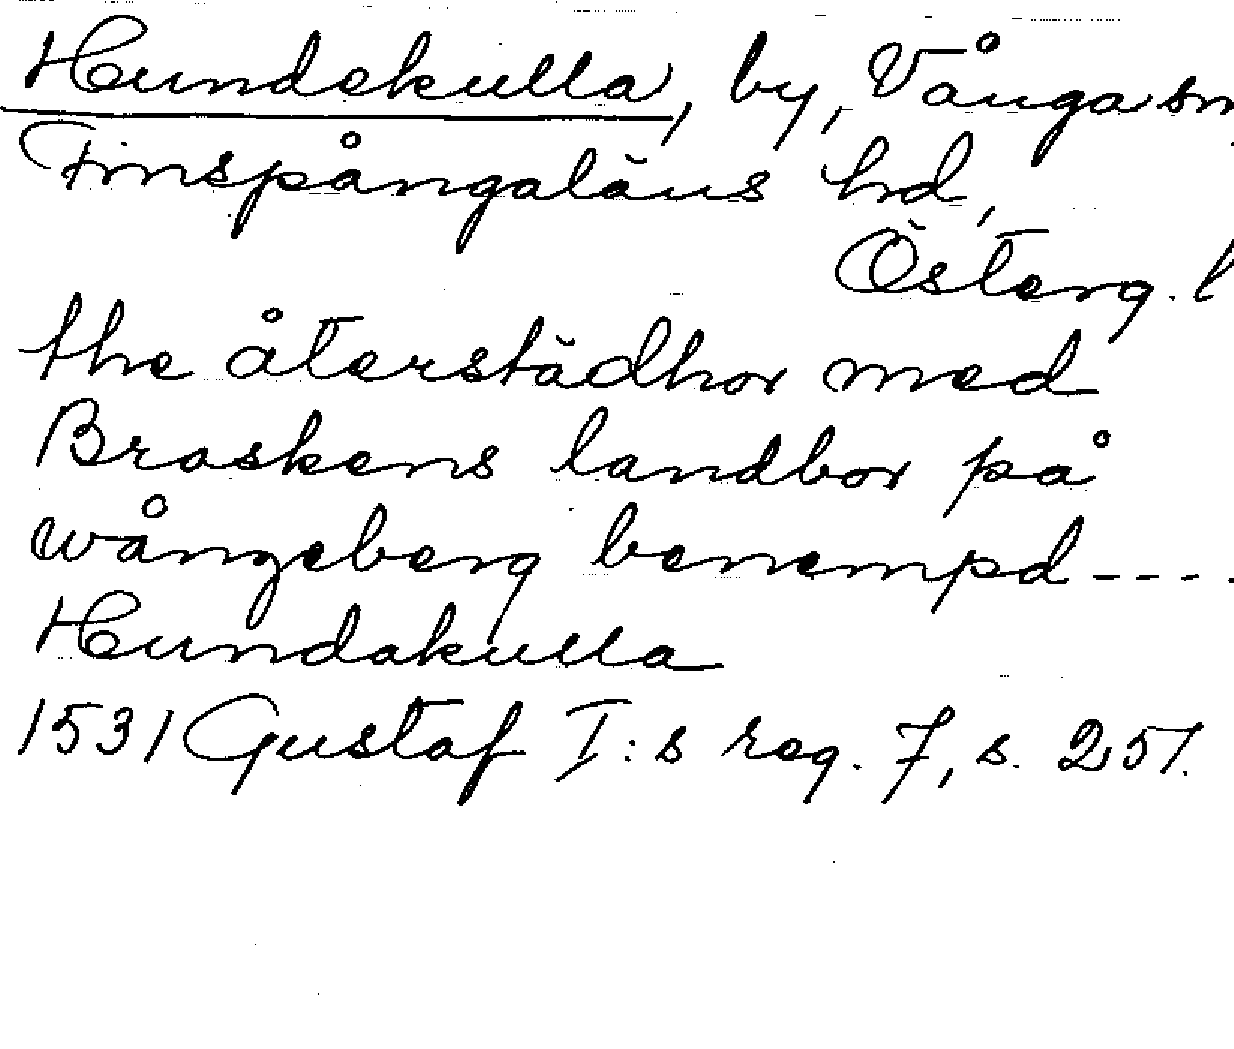 Hundekulla, by, Vånga sn
Finspångaläns hd,
Österg. l
the återstädhor med
Braskens landbor på
wångeberg benempd - - - -
Hundakulla
1531 Gustaf I:s reg. 7, s. 251.